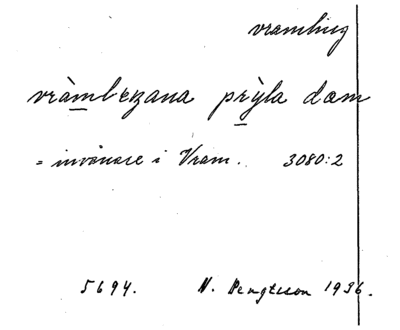 vrambieg
vràmbεzana prỳla dœm
= invånare i Vram. 3080:2
5694. N. Bengtsson 1936.